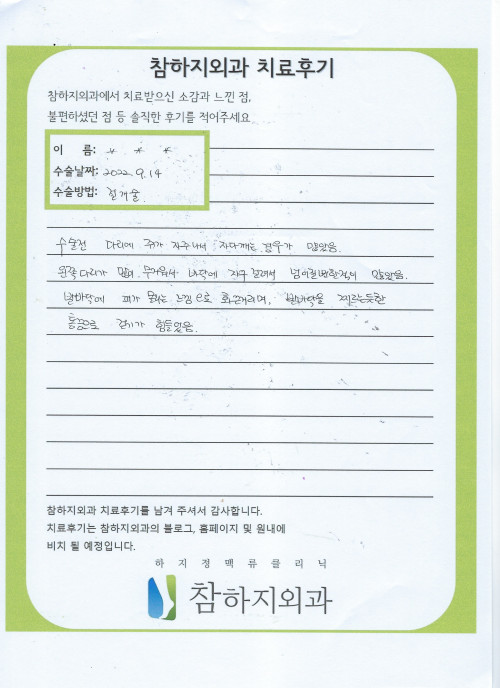 참하지외과 치료후기
참하지외과에서 치료받으신 소감과 느낀 점,
불편하셨던 점 등 솔직한 후기를 적어주세요.
이 름: * * *
수술날짜: 2022. 9. 14
수술방법: 절개술
수술전 다리에 쥐가 자주나서 자다깨는 경우가 많았음.
왼쪽다리가 무거워서 바닥에 자주 넘어질뻔한적이 많았음.
발바닥에 피가 느낌으로 화끈거리며, 발바닥을 찌르는듯한
통증으로 걷기가 힘들었음.
참하지외과 치료후기를 남겨 주셔서 감사합니다.
치료후기는 참하지외과의 블로그, 홈페이지 및 원내에
비치 될 예정입니다.
하지정맥류클리닉
참하지외과